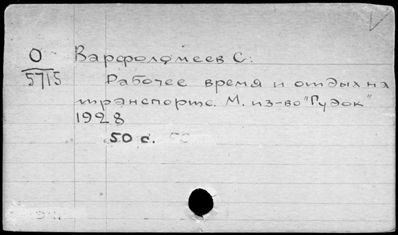 О
5715
Варфоломеев С.
Рабочее время и отдых на
транспорте. М. из-во "Гудок"
1928
50 с.